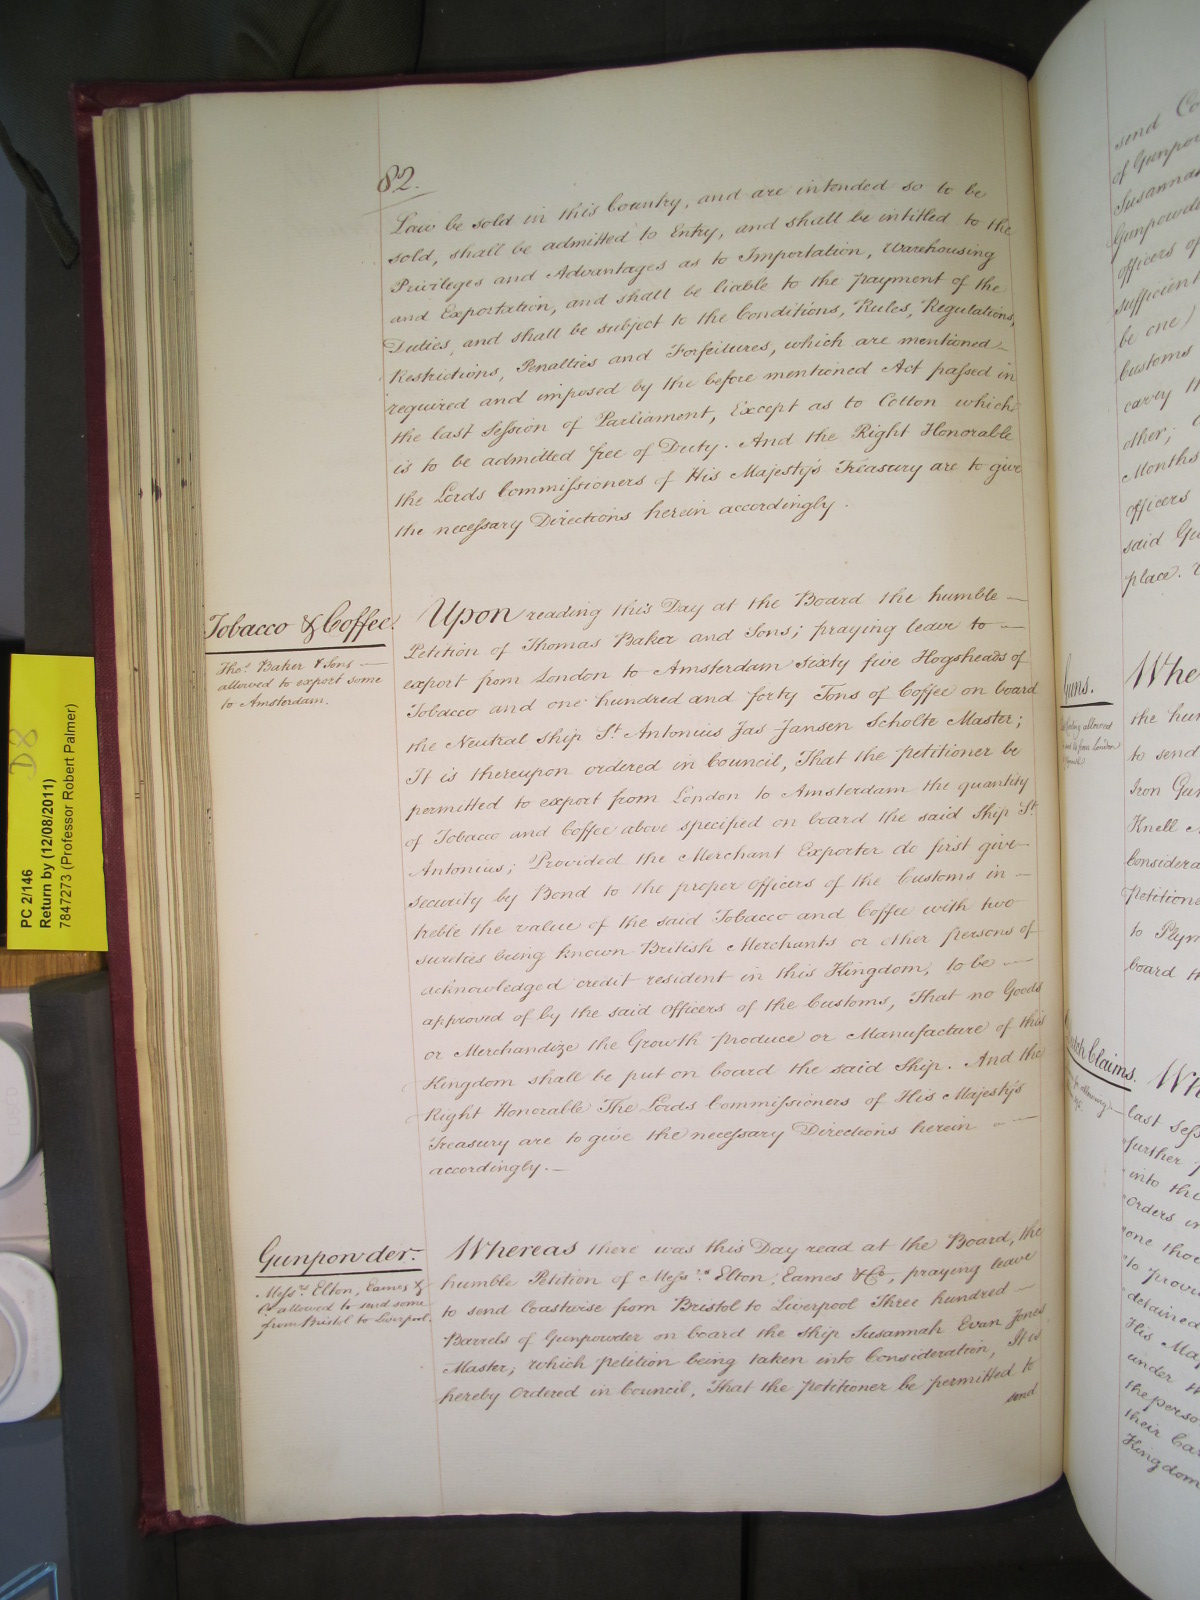 82.
Law be sold in this Country, and are intended so to be
sold, shall be admitted to Entry, and shall be intitled to the
Privileges and Advantages as to Importation, Warehousing
and Exportation, and shall be liable to the payment of the
Duties, and shall be subject to the Conditions, Rules, Regulations,
Restrictions, Penalties and Forfeitures, which are mentioned
required and imposed by the before mentioned Act passed in
the last Session of Parliament, Except as to Cotton which
is to be admitted free of Duty. And the Right Honorable
the Lords Commissioners of His Majesty's Treasury are to give
the necessary Directions herein accordingly.
Tobacco & Coffee.
Thos. Baker & Sons
allowed to export some
to Amsterdam.
Upon reading this Day at the Board the humble
Petition of Thomas Baker and Sons; praying leave to
export from London to Amsterdam sixty five Hogsheads of
Tobacco and one hundred and forty Tons of Coffee on board
the Neutral Ship St. Antonius Jas Jansen Scholte Master;
It is thereupon ordered in Council, That the petitioner be
permitted to export from London to Amsterdam the quantity
of Tobacco and Coffee above specified on board the said Ship St.
Antonius; Provided the Merchant Exporter do first give
security by Bond to the proper Officers of the Customs in
treble the value of the said Tobacco and Coffee with two
sureties being known British Merchants or other persons of
acknowledged credit resident in this Kingdom, to be
approved of by the said Officers of the Customs, That no Goods
or Merchandize the Growth produce or Manufacture of this
Kingdom shall be put on board the said Ship. And the
Right Honorable The Lords Commissioners of His Majesty's
Treasury are to give the necessary Directions herein
accordingly.
Gunpowder.
Messrs. Elton, Eames &
Co. allowed to send some
from Bristol to Liverpool.
Whereas there was this Day read at the Board, the
humble Petition of Messrs. Elton, Eames & Co, praying leave
to send Coastwise from Bristol to Liverpool Three hundred
Barrels of Gunpowder on board the Ship Susannah Evan Jones
Master; which petition being taken into Consideration, It is
hereby Ordered in Council, That the petitioner be permitted to
send
PC 2/146
D8
Return by (12/08/2011)
7847273 (Professor Robert Palmer)
send
of Gunpow
Susannah
Gunpowde
officers of
sufficient
be one)
Customs
carry th
other;
Months
officers
said Gu
place.
Guns.
Whe
the hum
to send
Iron Gun
Knell
Considera
Petitione
to Plym
board th
Claims.
Wh
last Sess
further
into the
Orders in
one thou
to provid
detained
His Maj
under th
the perso
their Car
Kingdom